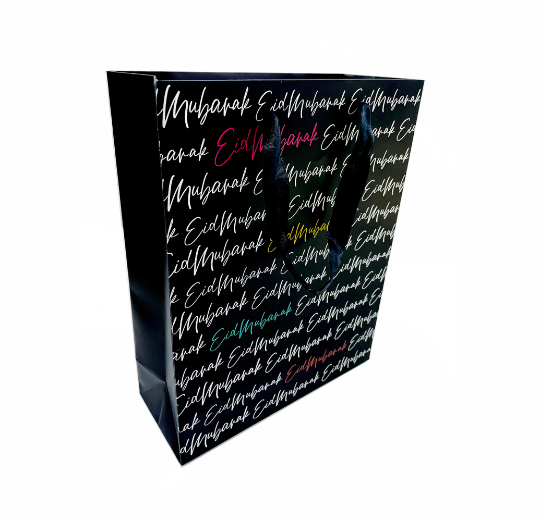 Mubarak EidMubarak EidMubarak
barak EidMubarak EidMubarak Eid
dMubarak EidMubarak EidMubarak
k EidMubarak EidMubarak
idMubarak EidMubarak EidMubarak
k EidMubarak EidMubarak
dMubarak EidMubarak EidMubarak
arak EidMubarak EidMubarak
ubarak EidMubarak EidMubarak
EidMubarak EidMubarak EidMubarak
ak EidMubarak EidMubarak EidMubarak
dMubarak EidMubarak EidMubarak